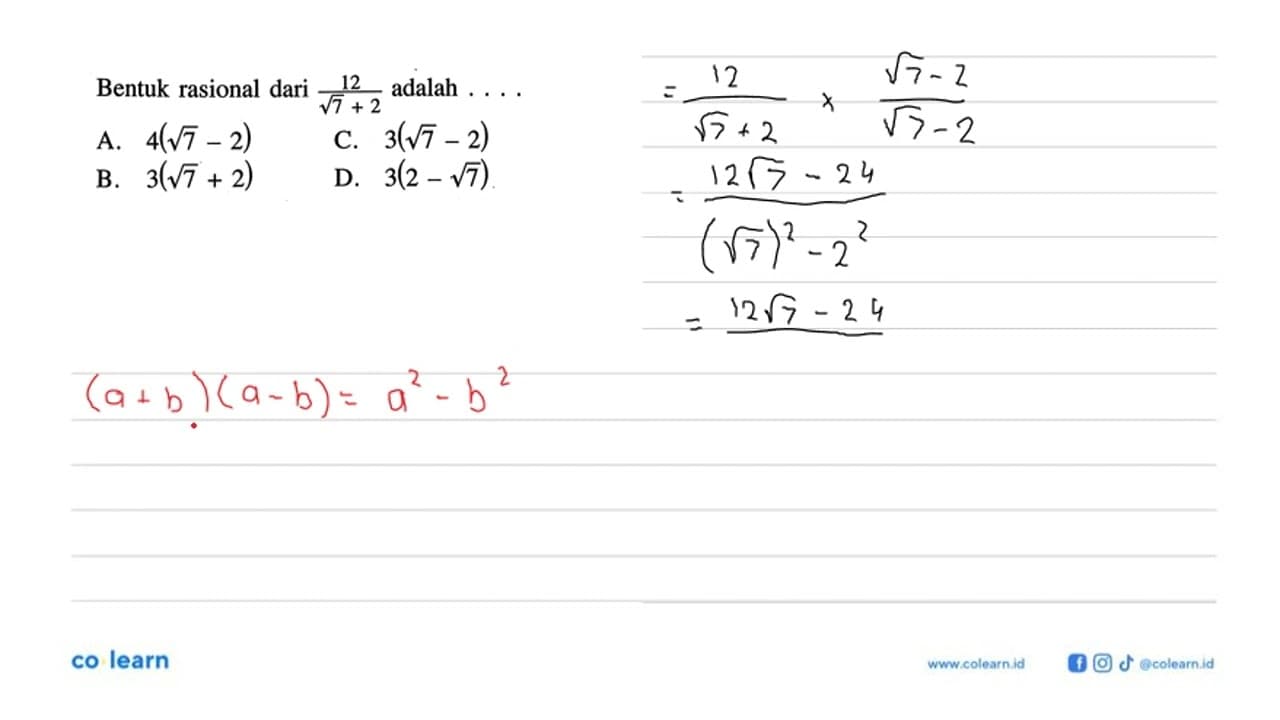 Bentuk rasional dari 12/(√7 + 2) adalah . . . .
A. 4(√7 – 2) C. 3(√7 – 2)
B. 3(√7 + 2) D. 3(2 – √7)
= 12/(√7 + 2) x (√7 - 2)/(√7 - 2)
= (12√7 - 24)/((√7)² - 2²)
= 12√7 - 24
(a + b)(a - b) = a² - b²
co learn
www.colearn.id @colearn.id